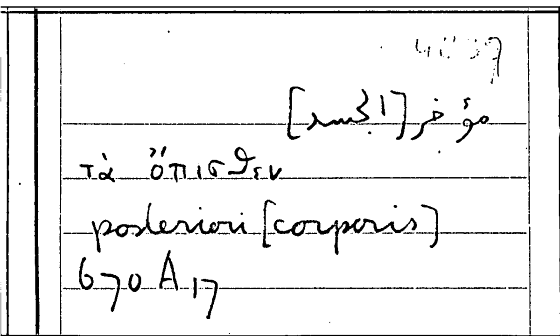 4039
مؤخر [الجسد]
τὰ ὄπισθεν
posteriori [corporis]
670 A 17